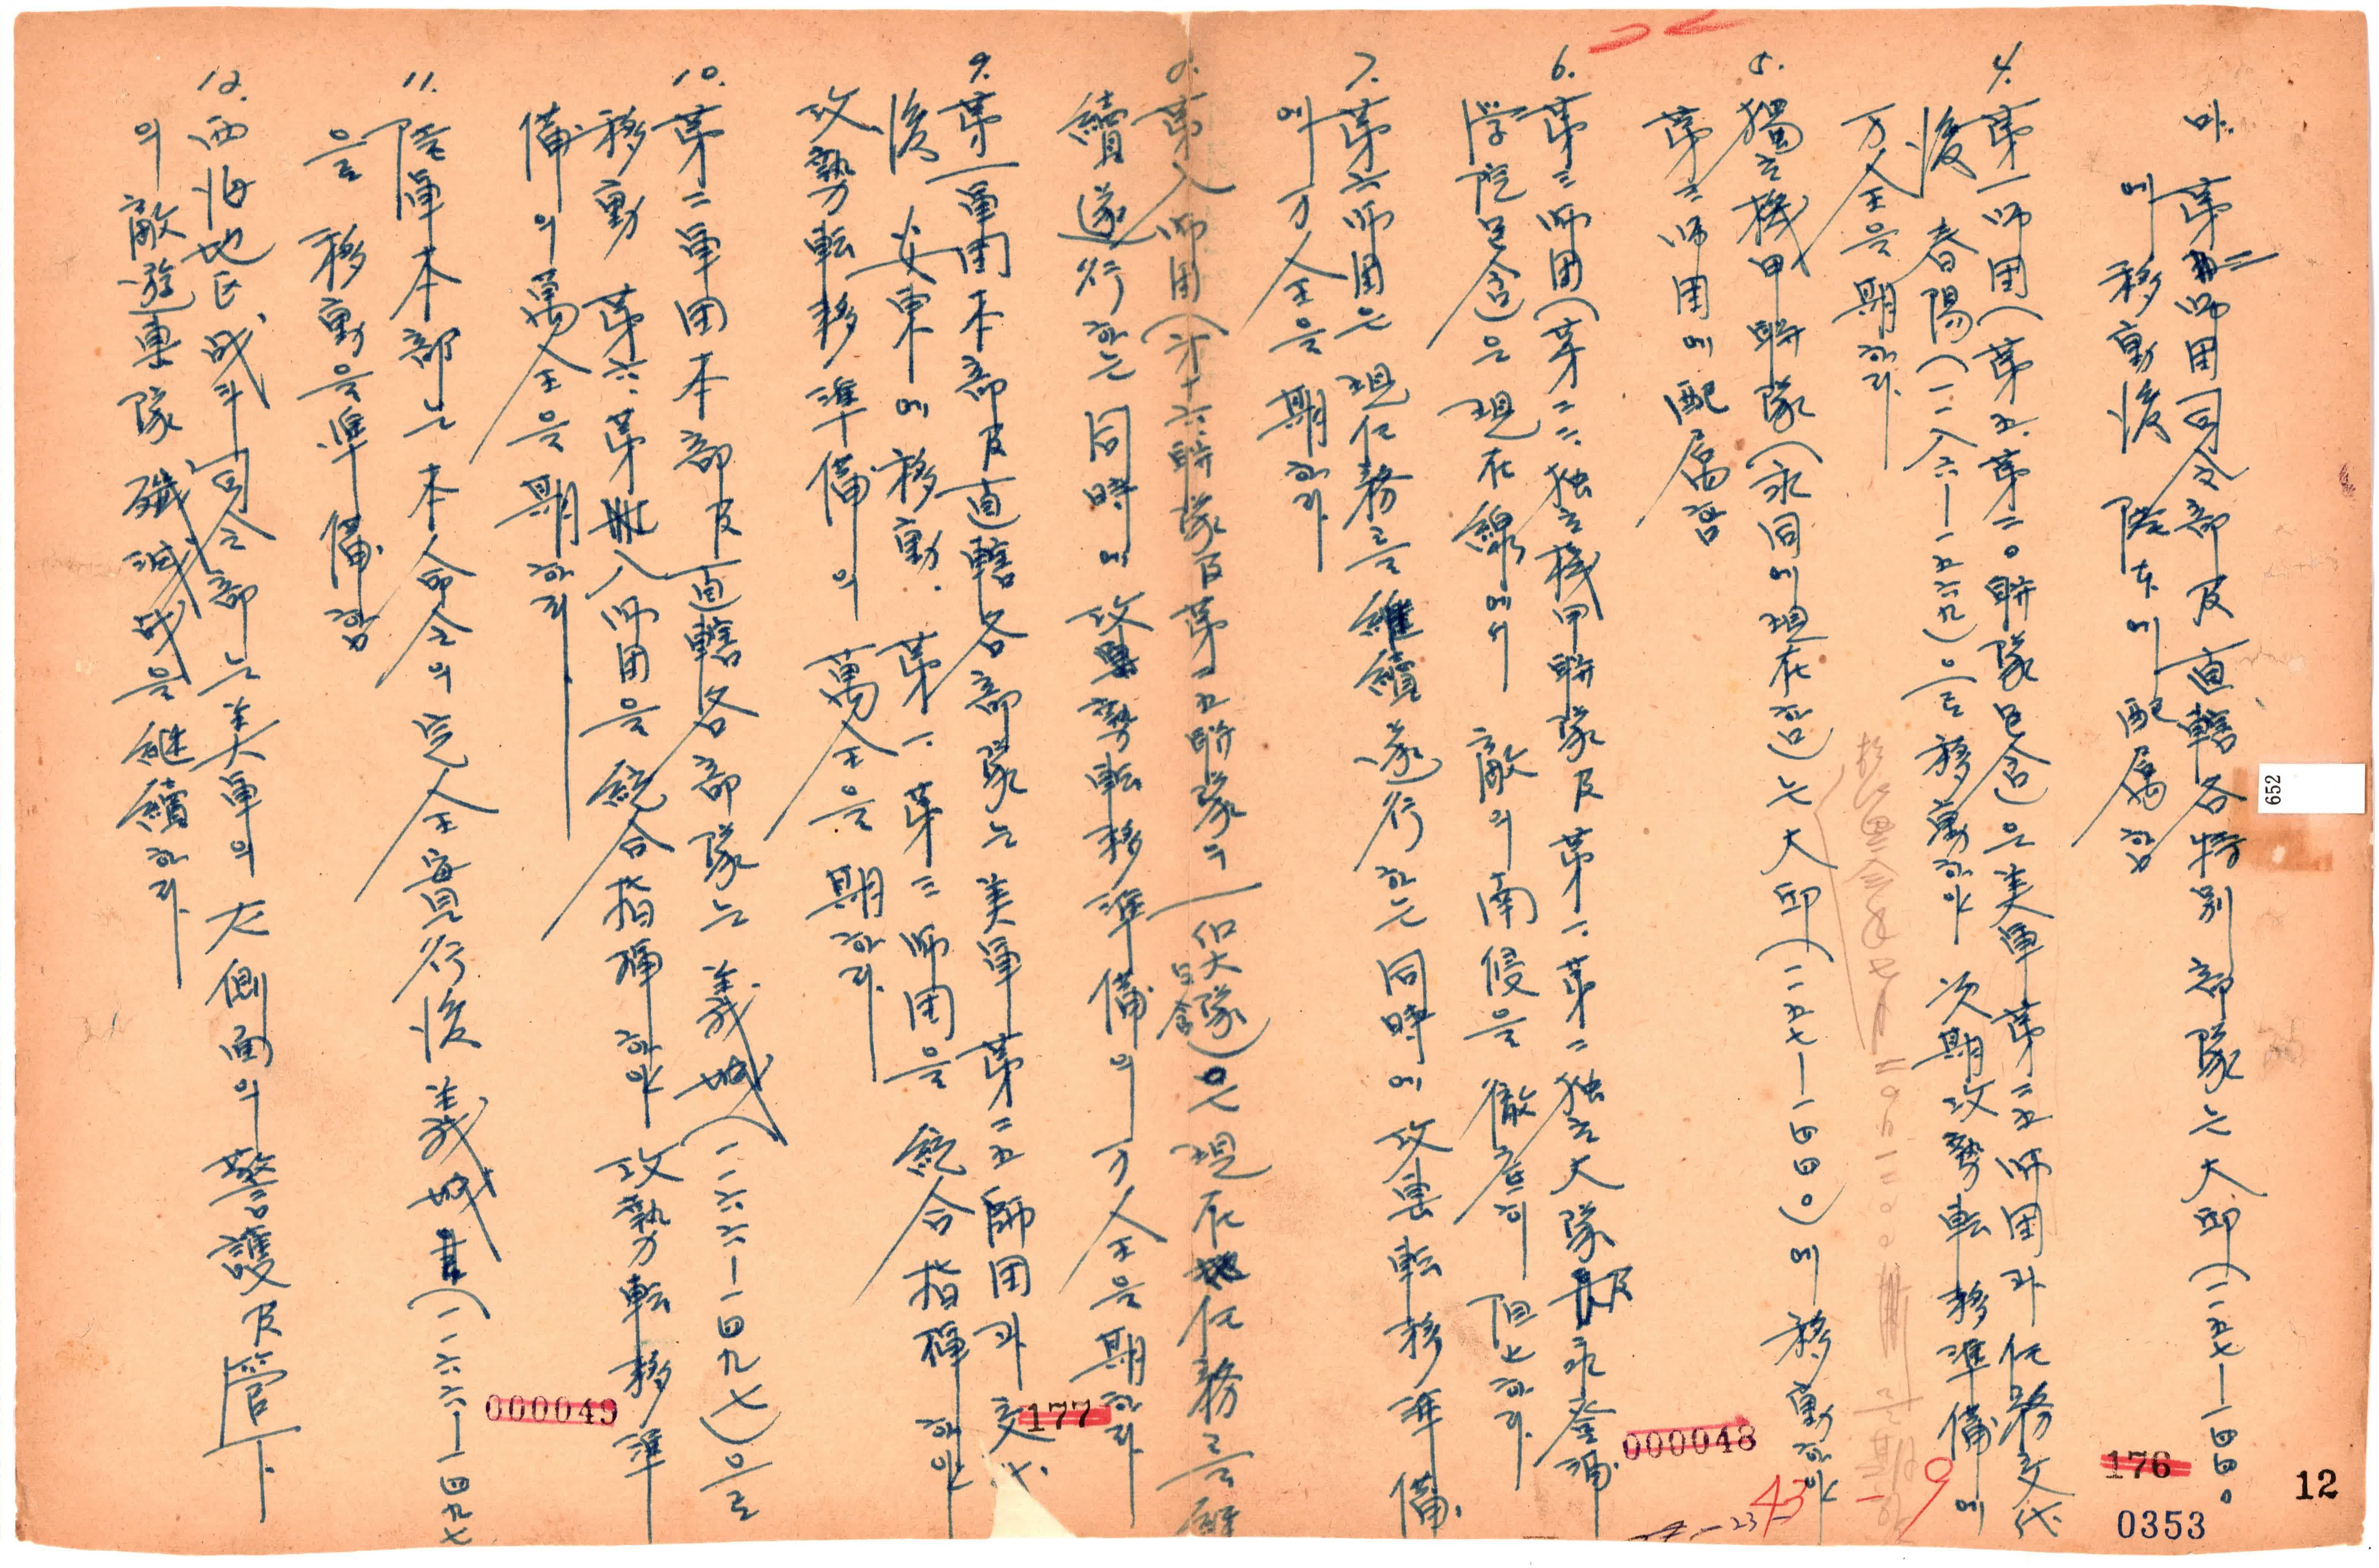 마. 第二師団司令部及直轄各特別部隊는大邱(一一五七—一四四〇
에移動後 陸本에 配属함
4. 第一師団(第五.第二〇聯隊包含)은美軍第二五師団과任務交代
後 春陽(一一八六—一五六九)으로移動하야 次期攻勢転移準備에
万全을期하라.
5. 獨立機甲聯隊(永同에現在함)는大邱(一一五七—一四四〇)에移動하야
第三師団에配属함
6. 第三師団(第二二.独立機甲聯隊及第一.第二独立大隊及
包含)은現在線에서 敵의南侵을徹底히阻止하라.
7. 第六師団은現任務를継續遂行하는同時에攻勢転移準備.
에万全을期하라.
8. 第八師団(第十六聯隊及第二五聯隊의一個大隊包含)은現任務를継
續遂行하는同時에攻勢転移準備의万全을期하라
9. 第一軍団本部及直轄各部隊는美軍第二五師団과交代
後 安東에移動. 第一.第三師団을統合指揮하야
攻勢転移準備의萬全을期하라.
10. 第二軍団本部及直轄各部隊는義城(一一六六—一四九七)으로
移動 第六.第八師団을統合指揮하야 攻勢転移準
備의萬全을期하라
11. 陸軍本部는本命令의完全實行後義城(一一六六—一四九七
을移動을準備함
12. 西海地区战斗司令部는美軍의左側面의警護及管下
의敵遊撃隊殲滅战을継續하라.
000049
177
000048
176
43
9
12
0353
652